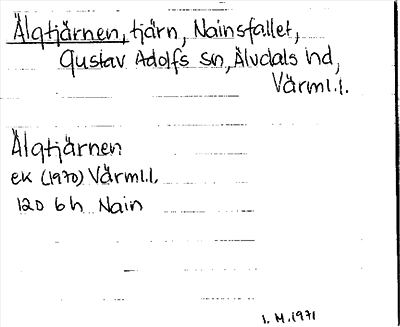 Älgtjärnen, tjärn, Nainsfallet,
Gustav Adolfs sn, Älvdals hd,
Värml.l.
Älgtjärnen
ek (1970) Värml.l.
12D 6h Nain
1. M. 1971